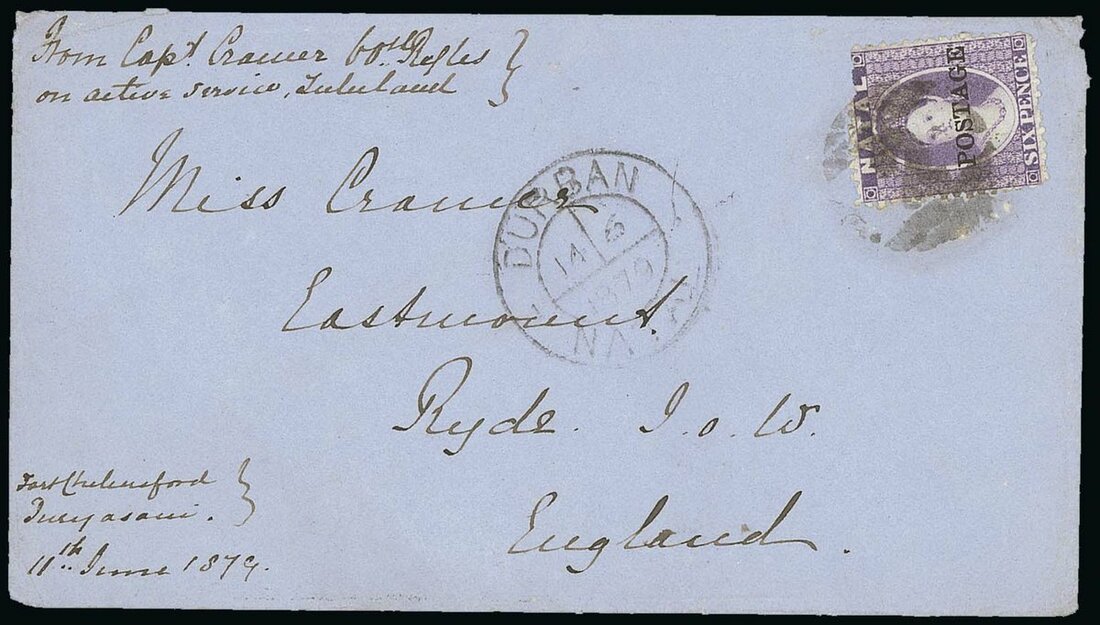 From Capt Cramer 60th Rifles
on active service, Zululand
NATAL
POSTAGE
SIX PENCE
DURBAN
14 6
1879
NATAL
Miss Cramer
Eastmount.
Ryde. I. o. W.
England.
Fort Chelmsford
11th June 1879.